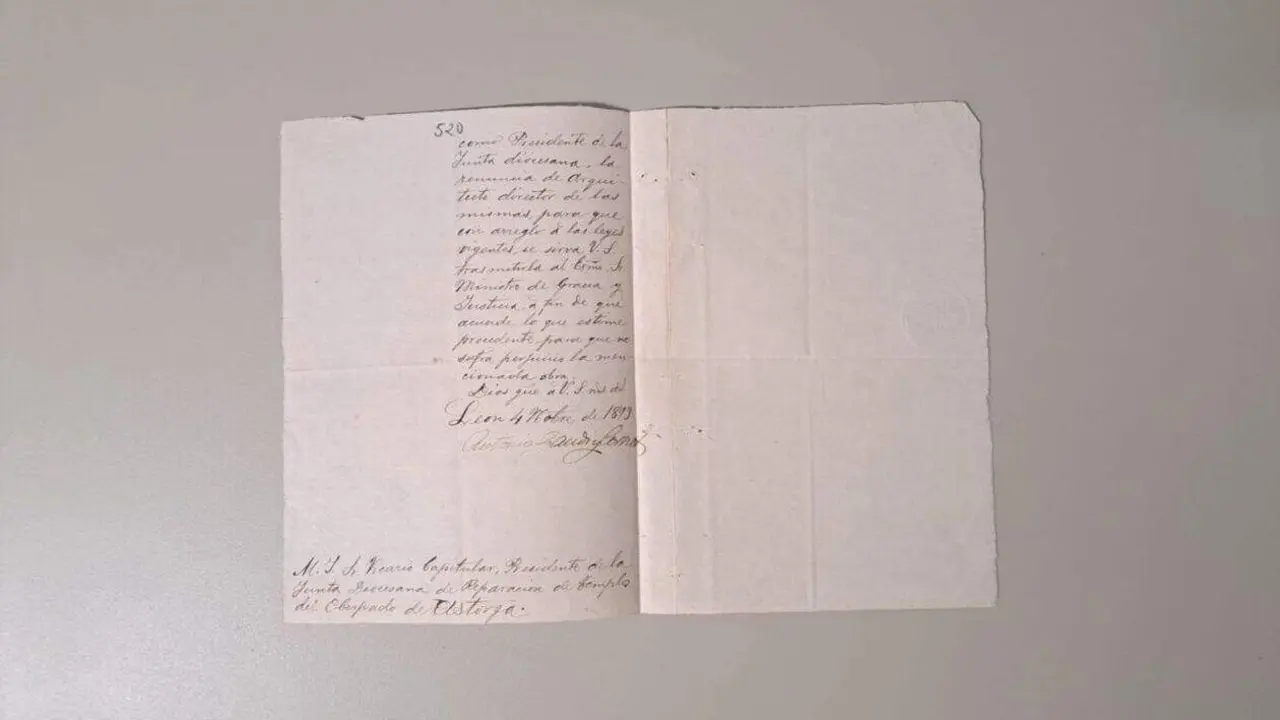 520
como Presidente de la
Junta diocesana, la
renuncia de Arqui-
tecto director de las
mismas, para que
con arreglo á las leyes
vigentes, se sirva V. S.
trasmitirla al Exmo. Sr.
Ministro de Gracia y
Justicia á fin de que
acuerde lo que estime
procedente, para que no
sufra perjuicio la men-
cionada obra.
Dios gue á V. S. ms. as.
Leon 4 Nobre. de 1893
Antonio Gaudí y Cornet
M. I. Sr. Vicario Capitular, Presidente de la
Junta Diocesana de Reparacion de Templos
del Obispado de Astorga.